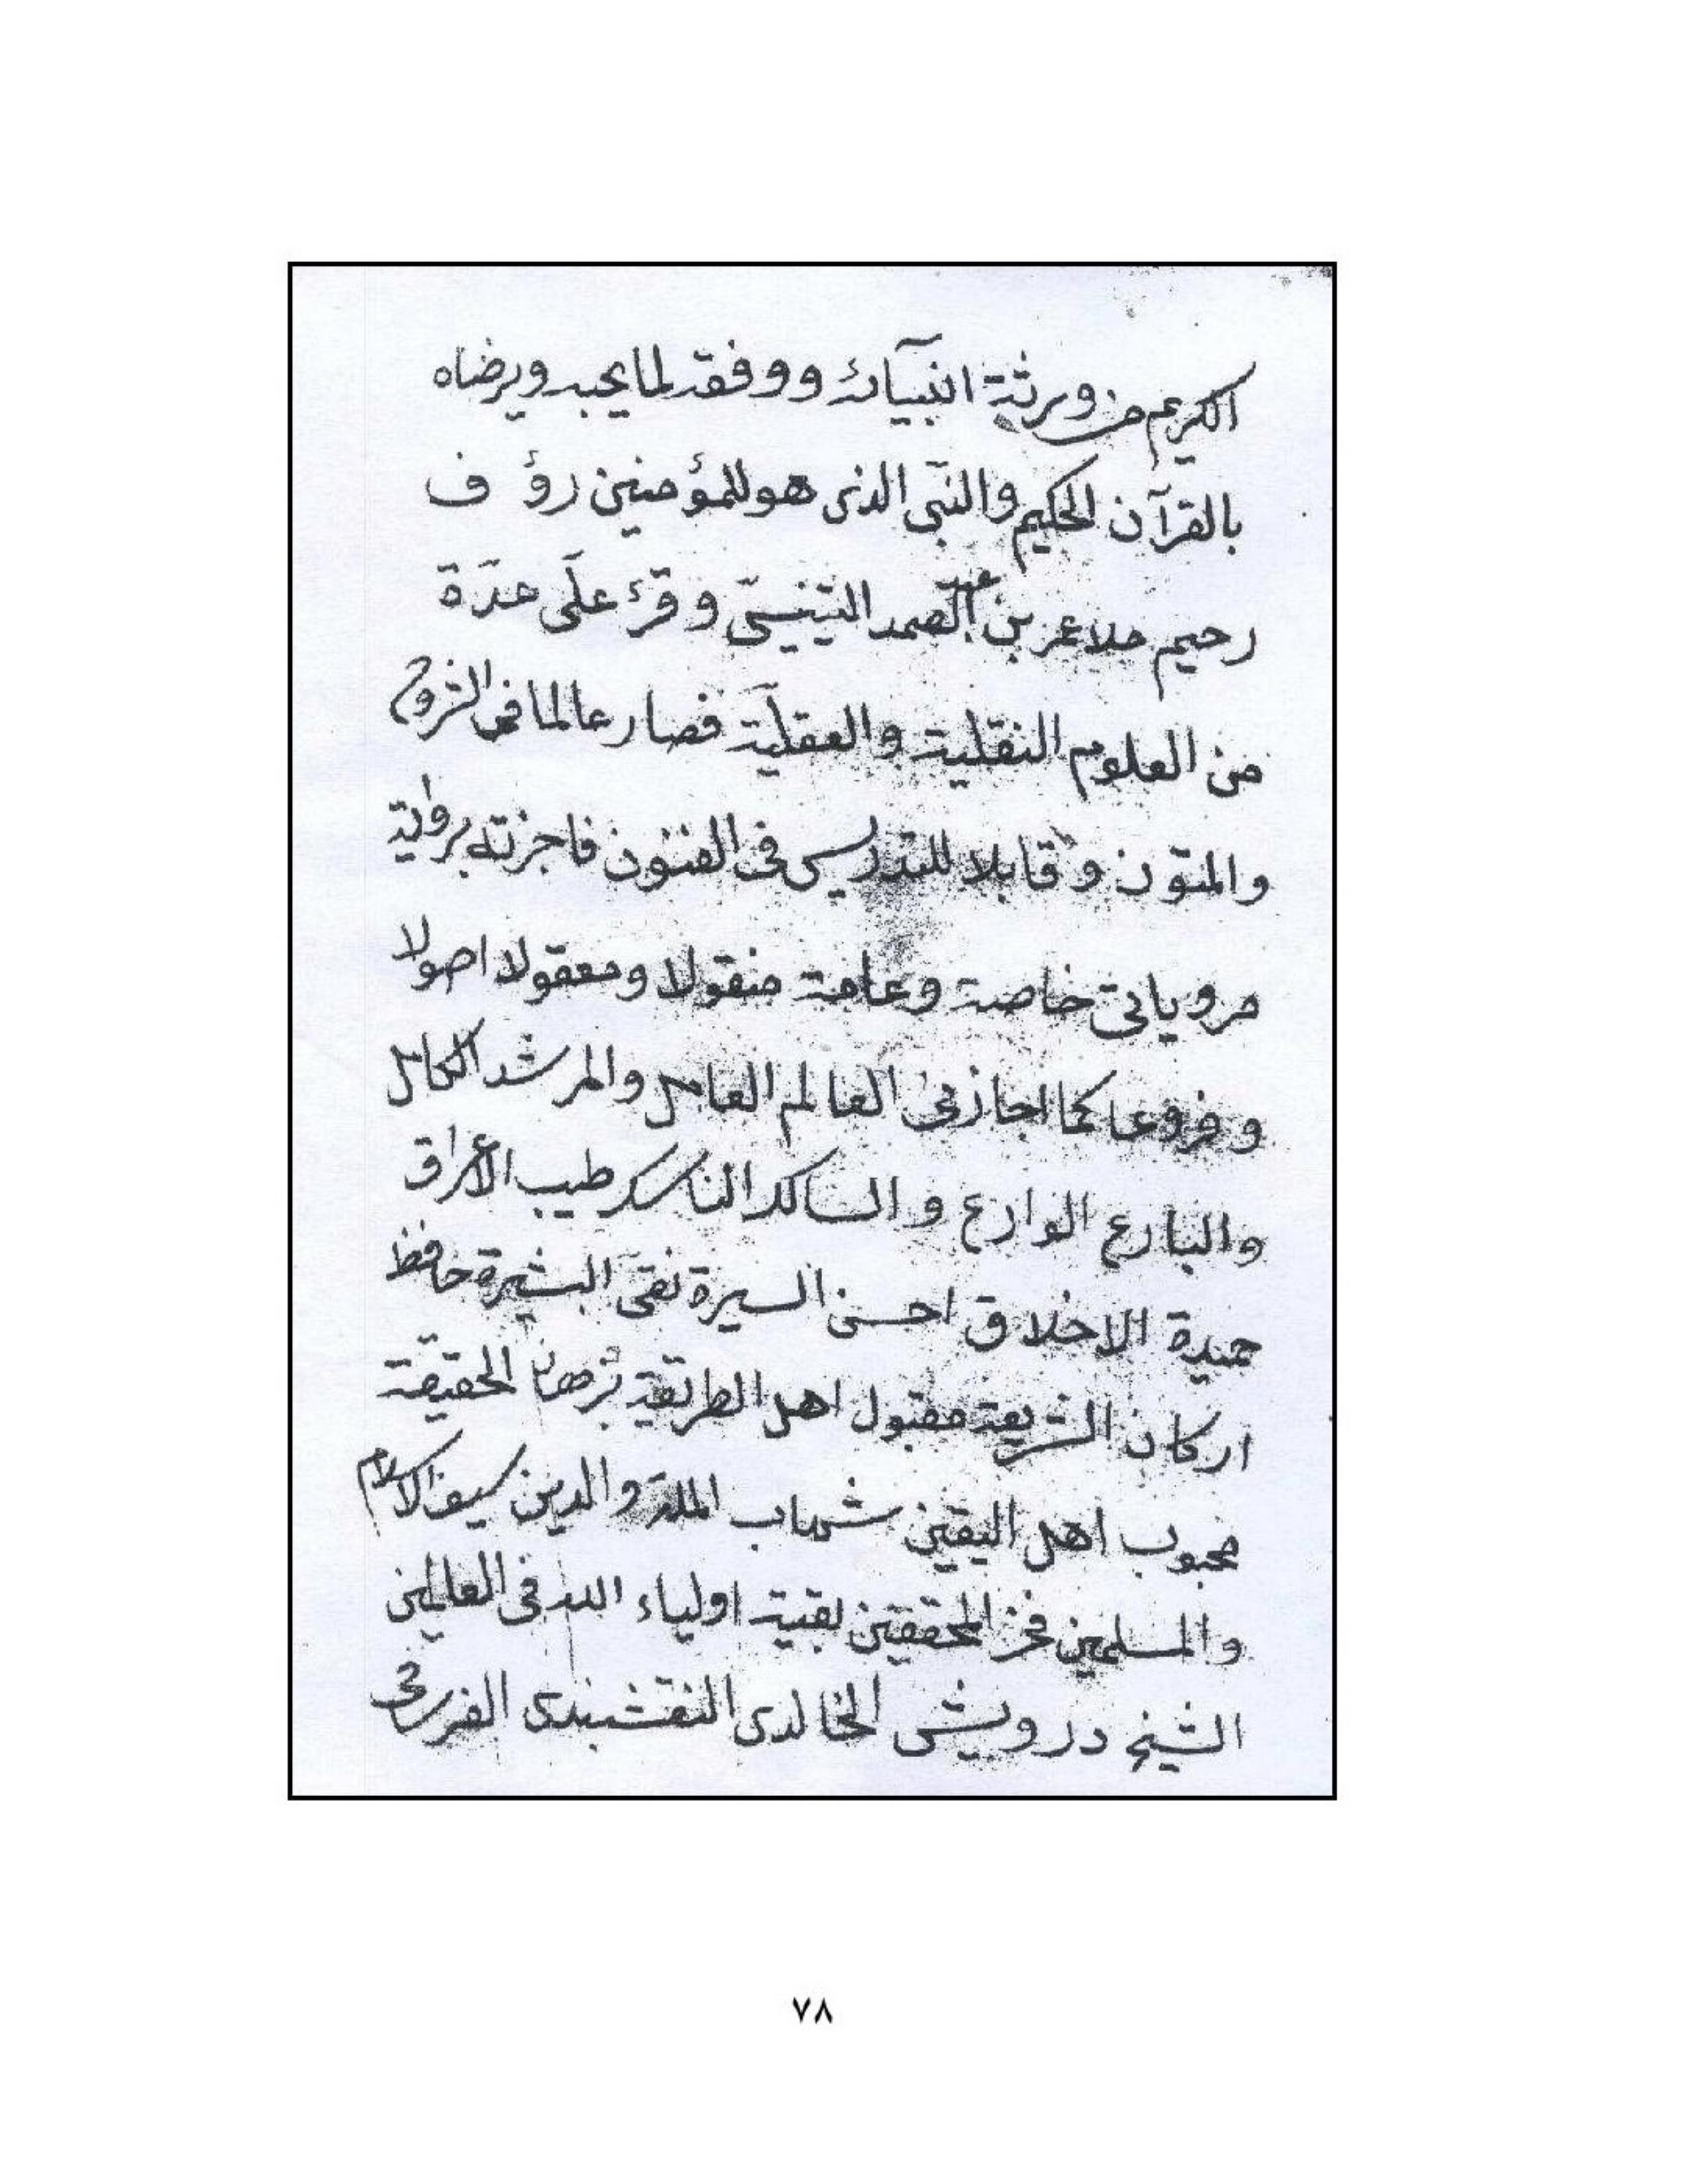 الكريم من ورثة انبيائه ووفقه لما يحبه ويرضاه
بالقرآن الحكيم والنبى الذى هو للمؤمنين رؤف
رحيم ملا عمر بن عبد الصمد التينيسى وقرئ علىّ عدّة
من العلوم النقلية والعقليّة فصار عالما فى الشروح
والمتون وقابلا للتدريس فى الفنون فاجزته برواية
مروياتى خاصة وعامة منقولا ومعقولا اصولا
وفروعا كما اجازنى العالم العامل والمرشد الكامل
والبارع الوارع والسالك الناسك طيب الأعراق
حميدة الاخلاق احسن السيرة نقى البشيرة حافظ
اركان الشريعة مقبول اهل الطريقة برهان الحقيقة
محبوب اهل اليقين شهاب الملة والدين سيف الاسلام
والمسلمين فخر المحققين بقية اولياء الله فى العالمين
الشيخ درويش الخالدى النقشبندى
٧٨